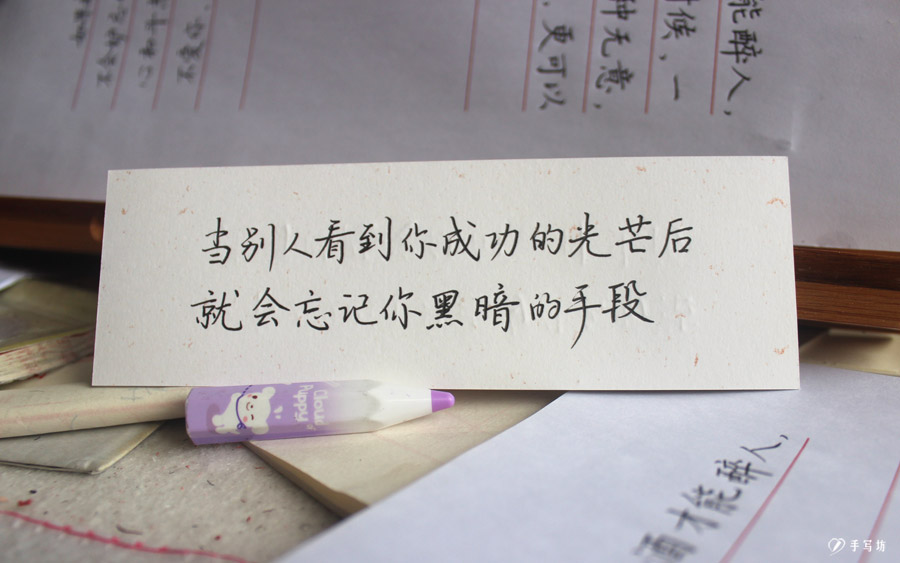 当别人看到你成功的光芒后
就会忘记你黑暗的手段
能醉人，
时候，一
种无意，
，更可以
Cloud
Puppy
雨才能醉人，
手写坊